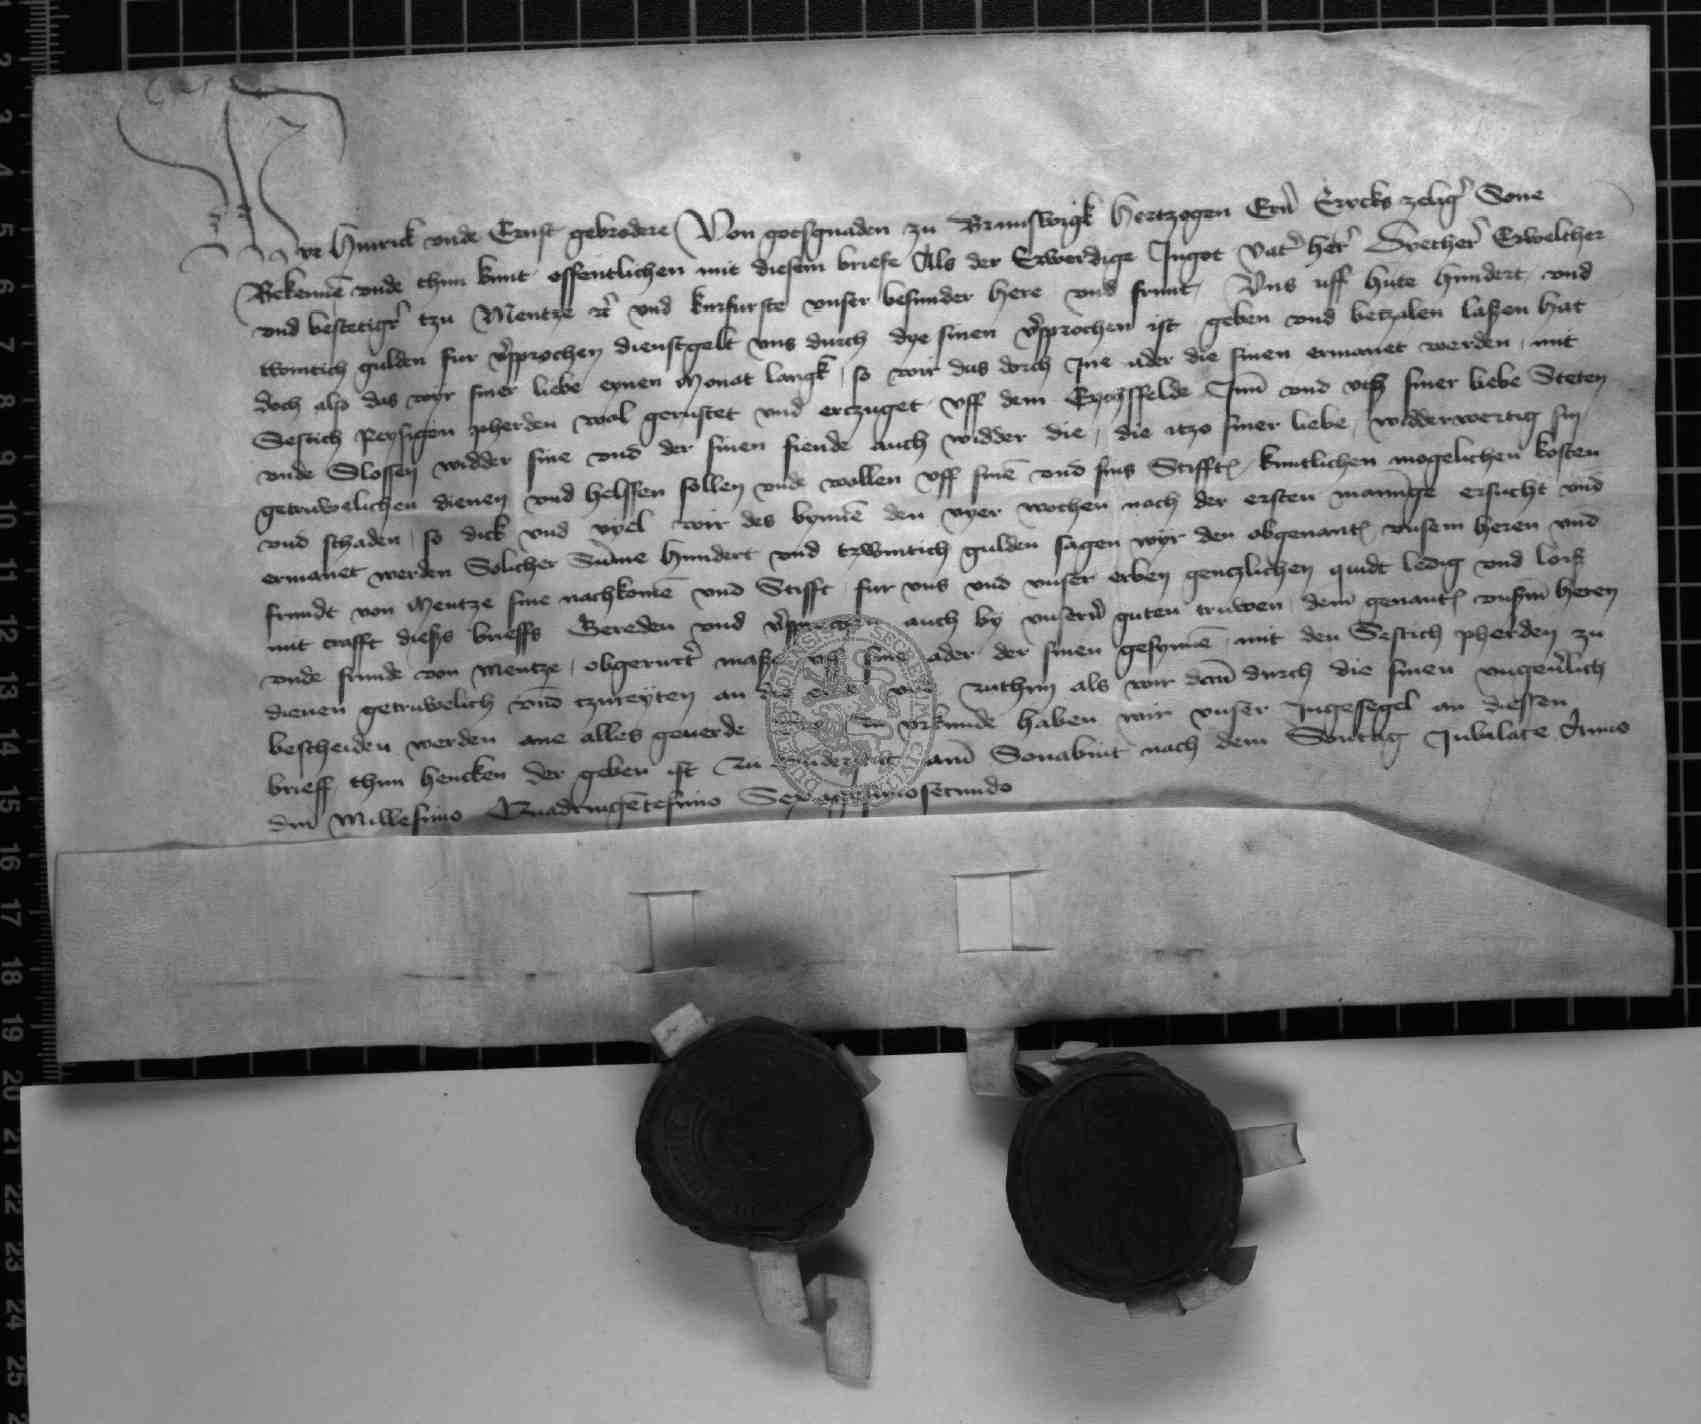 Wir Hinrick vnde Ernst gebrodere Von gotsgnaden zu Brunswigk Hertzogen Ern̄ Ericks zelig̓ Sone
Bekennē vnde thun kunt offentlichen mit diesem briefe Als der Erwerdige Ingot vat̓ her̓ Diether̓ Erwelcher
vnd bestetig̓ tzu Mentze ꝛc̓ vnd kurfurste vnser besunder here vnd frunt, Vns uff hute hundert vnd
twintich gulden fur v̓sprochen dienstgelt vns durch dye sinen v̓sprochen ist geben vnd betzalen laßen hat
doch also das wyr siner liebe eynen Monat langk, so wir das dorch Ine ader die sinen ermanet werden, mit
Sestich Reysigen pherden wol gerustet vnd erczuget vff dem Eychsfelde Inn̄ vnd vß siner liebe Steten
vnde Slossen widder sine vnd der sinen fiende auch widder die, die itzo siner liebe, widderwertig sin
getruwelichen dienen vnd helffen sollen vnde wollen vff sinē vnd sins Stiffts, kuntlichen mogelichen kosten
vnd schaden, so dick vnd vyel wir des bynnē den vyer wochen nach der ersten mannige ersucht vnd
ermanet werden Solicher Sūme hundert vnd tzwintich gulden sagen wyr den obgenant̄ vnsem heren vnd
frundt von Mentze sine nachkomē vnd Stifft fur vns vnd vnser erben gentzlichen quidt ledig vnd loiß
mit crafft diesßs brieffs Gereden vnd v̓sprechen auch by vnsern̄ guten truwen dem genant̄ vnsm̄ heren
vnde frunde von Mentze, obgerurt̓ maße vff sine ader der sinen gesynnē mit den Sestich pherden zu
dienen getruwelich vnd tzureyten an die ende vnd zuthun als wir dan̄ durch die sinen vngeu̓lich
bescheiden werden ane alles geuerde vrkunde haben wir vnser Ingesegel an diessen
brieff thun hencken der geben ist zu am̄ Sonabint nach dem Sontag Jubilate Anno
dni Millesimo Quadringētesimo Sexagesimosecundo